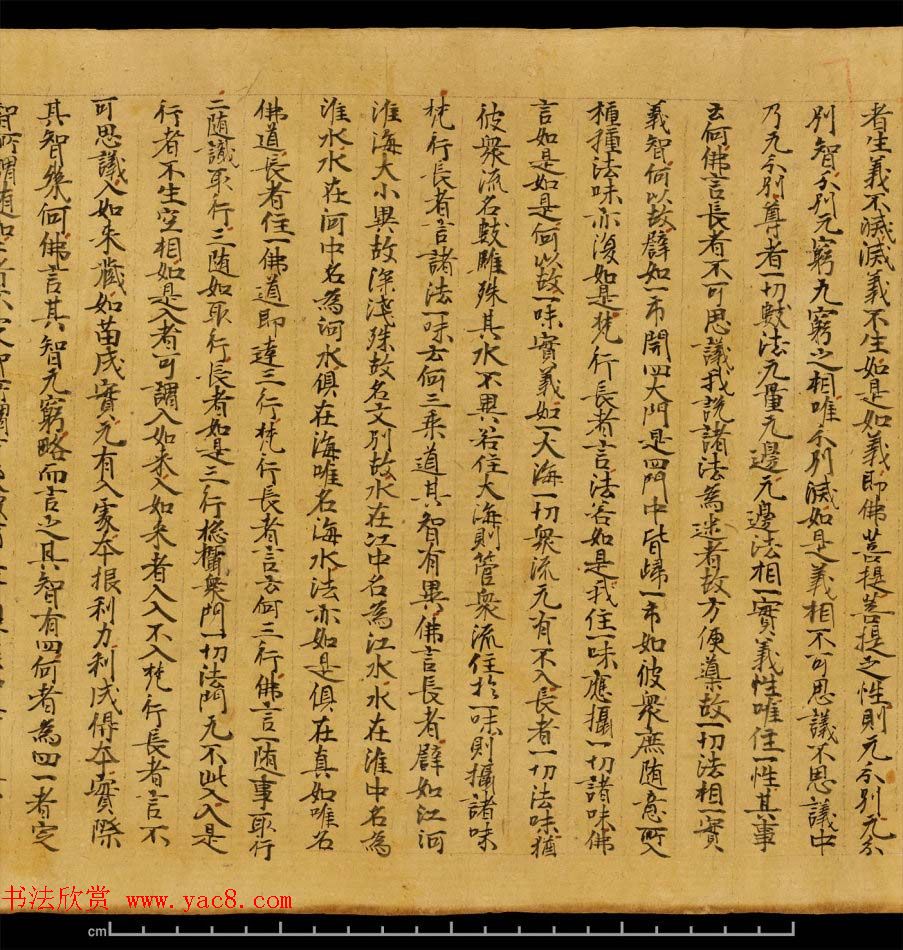 者生義不滅滅義不生如是如義即佛菩提菩提之性則无分別无分
別智分別无窮无窮之相唯分別滅如是義相不可思議不思議中
乃无分別尊者一切數法无量无邊无邊法相一實義性唯住一性其事
云何佛言長者不可思議我說諸法為迷者故方便噵故一切法相一實
義智何以故譬如一市開四大門是四門中皆歸一市如彼衆庶随意所入
種種法味亦復如是梵行長者言法若如是我住一味應攝一切諸味佛
言如是如是何以故一味實義如一大海一切衆流无有不入長者一切法味猶
彼衆流名數雖殊其水不異若住大海則管衆流住於一味則攝諸味
梵行長者言諸法一味云何三乘道其智有異佛言長者譬如江河
淮海大小異故深淺殊故名文別故水在江中名為江水水在淮中名為
淮水水在河中名為河水俱在海唯名海水法亦如是俱在真如唯名
佛道長者住一佛道即達三行梵行長者言云何三行佛言一随事取行
二随識取行三随如取行長者如是三行惣攝衆門一切法門无不此入入是
行者不生空相如是入者可謂入如来入如来者入入不入梵行長者言不
可思議入如来藏如苗成實无有入處本根利力利成得本實際
其智㡬何佛言其智无窮略而言之其智有四何者為四一者定
智所謂随如
cm
书法欣赏 www.yac8.com